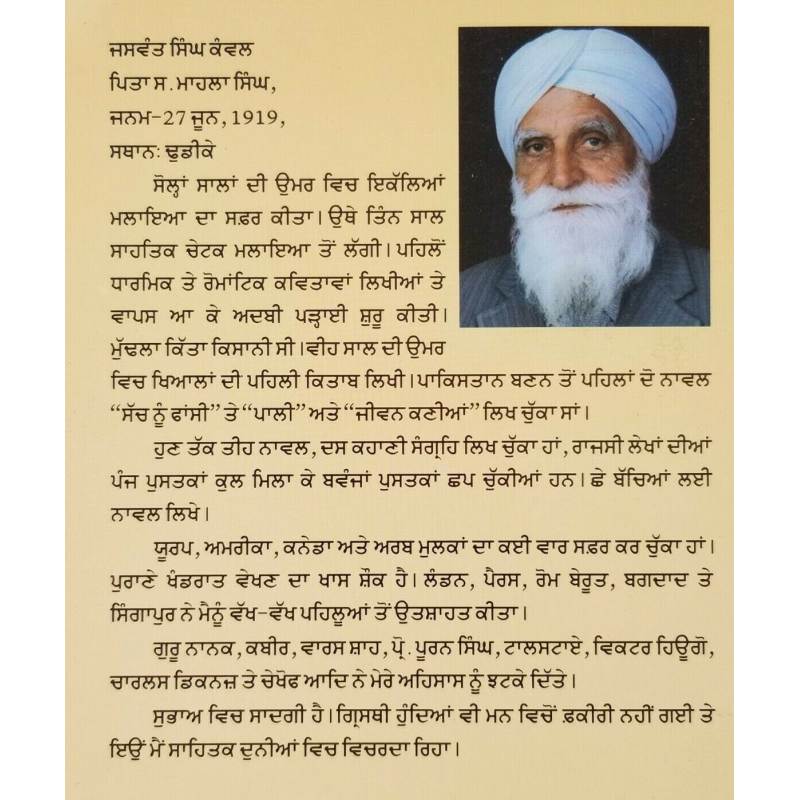 ਜਸਵੰਤ ਸਿੰਘ ਕੰਵਲ
ਪਿਤਾ ਸ. ਮਾਹਲਾ ਸਿੰਘ,
ਜਨਮ-27 ਜੂਨ, 1919,
ਸਥਾਨ: ਢੁਡੀਕੇ
ਸੋਲ੍ਹਾਂ ਸਾਲਾਂ ਦੀ ਉਮਰ ਵਿਚ ਇਕੱਲਿਆਂ
ਮਲਾਇਆ ਦਾ ਸਫ਼ਰ ਕੀਤਾ। ਉਥੇ ਤਿੰਨ ਸਾਲ
ਸਾਹਤਿਕ ਚੇਟਕ ਮਲਾਇਆ ਤੋਂ ਲੱਗੀ। ਪਹਿਲੋਂ
ਧਾਰਮਿਕ ਤੇ ਰੋਮਾਂਟਿਕ ਕਵਿਤਾਵਾਂ ਲਿਖੀਆਂ ਤੇ
ਵਾਪਸ ਆ ਕੇ ਅਦਬੀ ਪੜ੍ਹਾਈ ਸ਼ੁਰੂ ਕੀਤੀ।
ਮੁੱਢਲਾ ਕਿੱਤਾ ਕਿਸਾਨੀ ਸੀ। ਵੀਹ ਸਾਲ ਦੀ ਉਮਰ
ਵਿਚ ਖਿਆਲਾਂ ਦੀ ਪਹਿਲੀ ਕਿਤਾਬ ਲਿਖੀ। ਪਾਕਿਸਤਾਨ ਬਣਨ ਤੋਂ ਪਹਿਲਾਂ ਦੋ ਨਾਵਲ
“ਸੱਚ ਨੂੰ ਫਾਂਸੀ” ਤੇ “ਪਾਲੀ” ਅਤੇ “ਜੀਵਨ ਕਣੀਆਂ” ਲਿਖ ਚੁੱਕਾ ਸਾਂ।
ਹੁਣ ਤੱਕ ਤੀਹ ਨਾਵਲ, ਦਸ ਕਹਾਣੀ ਸੰਗ੍ਰਹਿ ਲਿਖ ਚੁੱਕਾ ਹਾਂ, ਰਾਜਸੀ ਲੇਖਾਂ ਦੀਆਂ
ਪੰਜ ਪੁਸਤਕਾਂ ਕੁਲ ਮਿਲਾ ਕੇ ਬਵੰਜਾਂ ਪੁਸਤਕਾਂ ਛਪ ਚੁੱਕੀਆਂ ਹਨ। ਛੇ ਬੱਚਿਆਂ ਲਈ
ਨਾਵਲ ਲਿਖੇ।
ਯੂਰਪ, ਅਮਰੀਕਾ, ਕਨੇਡਾ ਅਤੇ ਅਰਬ ਮੁਲਕਾਂ ਦਾ ਕਈ ਵਾਰ ਸਫ਼ਰ ਕਰ ਚੁੱਕਾ ਹਾਂ।
ਪੁਰਾਣੇ ਖੰਡਰਾਤ ਵੇਖਣ ਦਾ ਖਾਸ ਸ਼ੌਕ ਹੈ। ਲੰਡਨ, ਪੈਰਸ, ਰੋਮ ਬੇਰੂਤ, ਬਗਦਾਦ ਤੇ
ਸਿੰਗਾਪੁਰ ਨੇ ਮੈਨੂੰ ਵੱਖ-ਵੱਖ ਪਹਿਲੂਆਂ ਤੋਂ ਉਤਸ਼ਾਹਤ ਕੀਤਾ।
ਗੁਰੂ ਨਾਨਕ, ਕਬੀਰ, ਵਾਰਸ ਸ਼ਾਹ, ਪ੍ਰੋ. ਪੂਰਨ ਸਿੰਘ, ਟਾਲਸਟਾਏ, ਵਿਕਟਰ ਹਿਊਗੋ,
ਚਾਰਲਸ ਡਿਕਨਜ਼ ਤੇ ਚੇਖੋਫ ਆਦਿ ਨੇ ਮੇਰੇ ਅਹਿਸਾਸ ਨੂੰ ਝਟਕੇ ਦਿੱਤੇ।
ਸੁਭਾਅ ਵਿਚ ਸਾਦਗੀ ਹੈ। ਗ੍ਰਿਸਥੀ ਹੁੰਦਿਆਂ ਵੀ ਮਨ ਵਿਚੋਂ ਫ਼ਕੀਰੀ ਨਹੀਂ ਗਈ ਤੇ
ਇਉਂ ਮੈਂ ਸਾਹਿਤਕ ਦੁਨੀਆਂ ਵਿਚ ਵਿਚਰਦਾ ਰਿਹਾ।